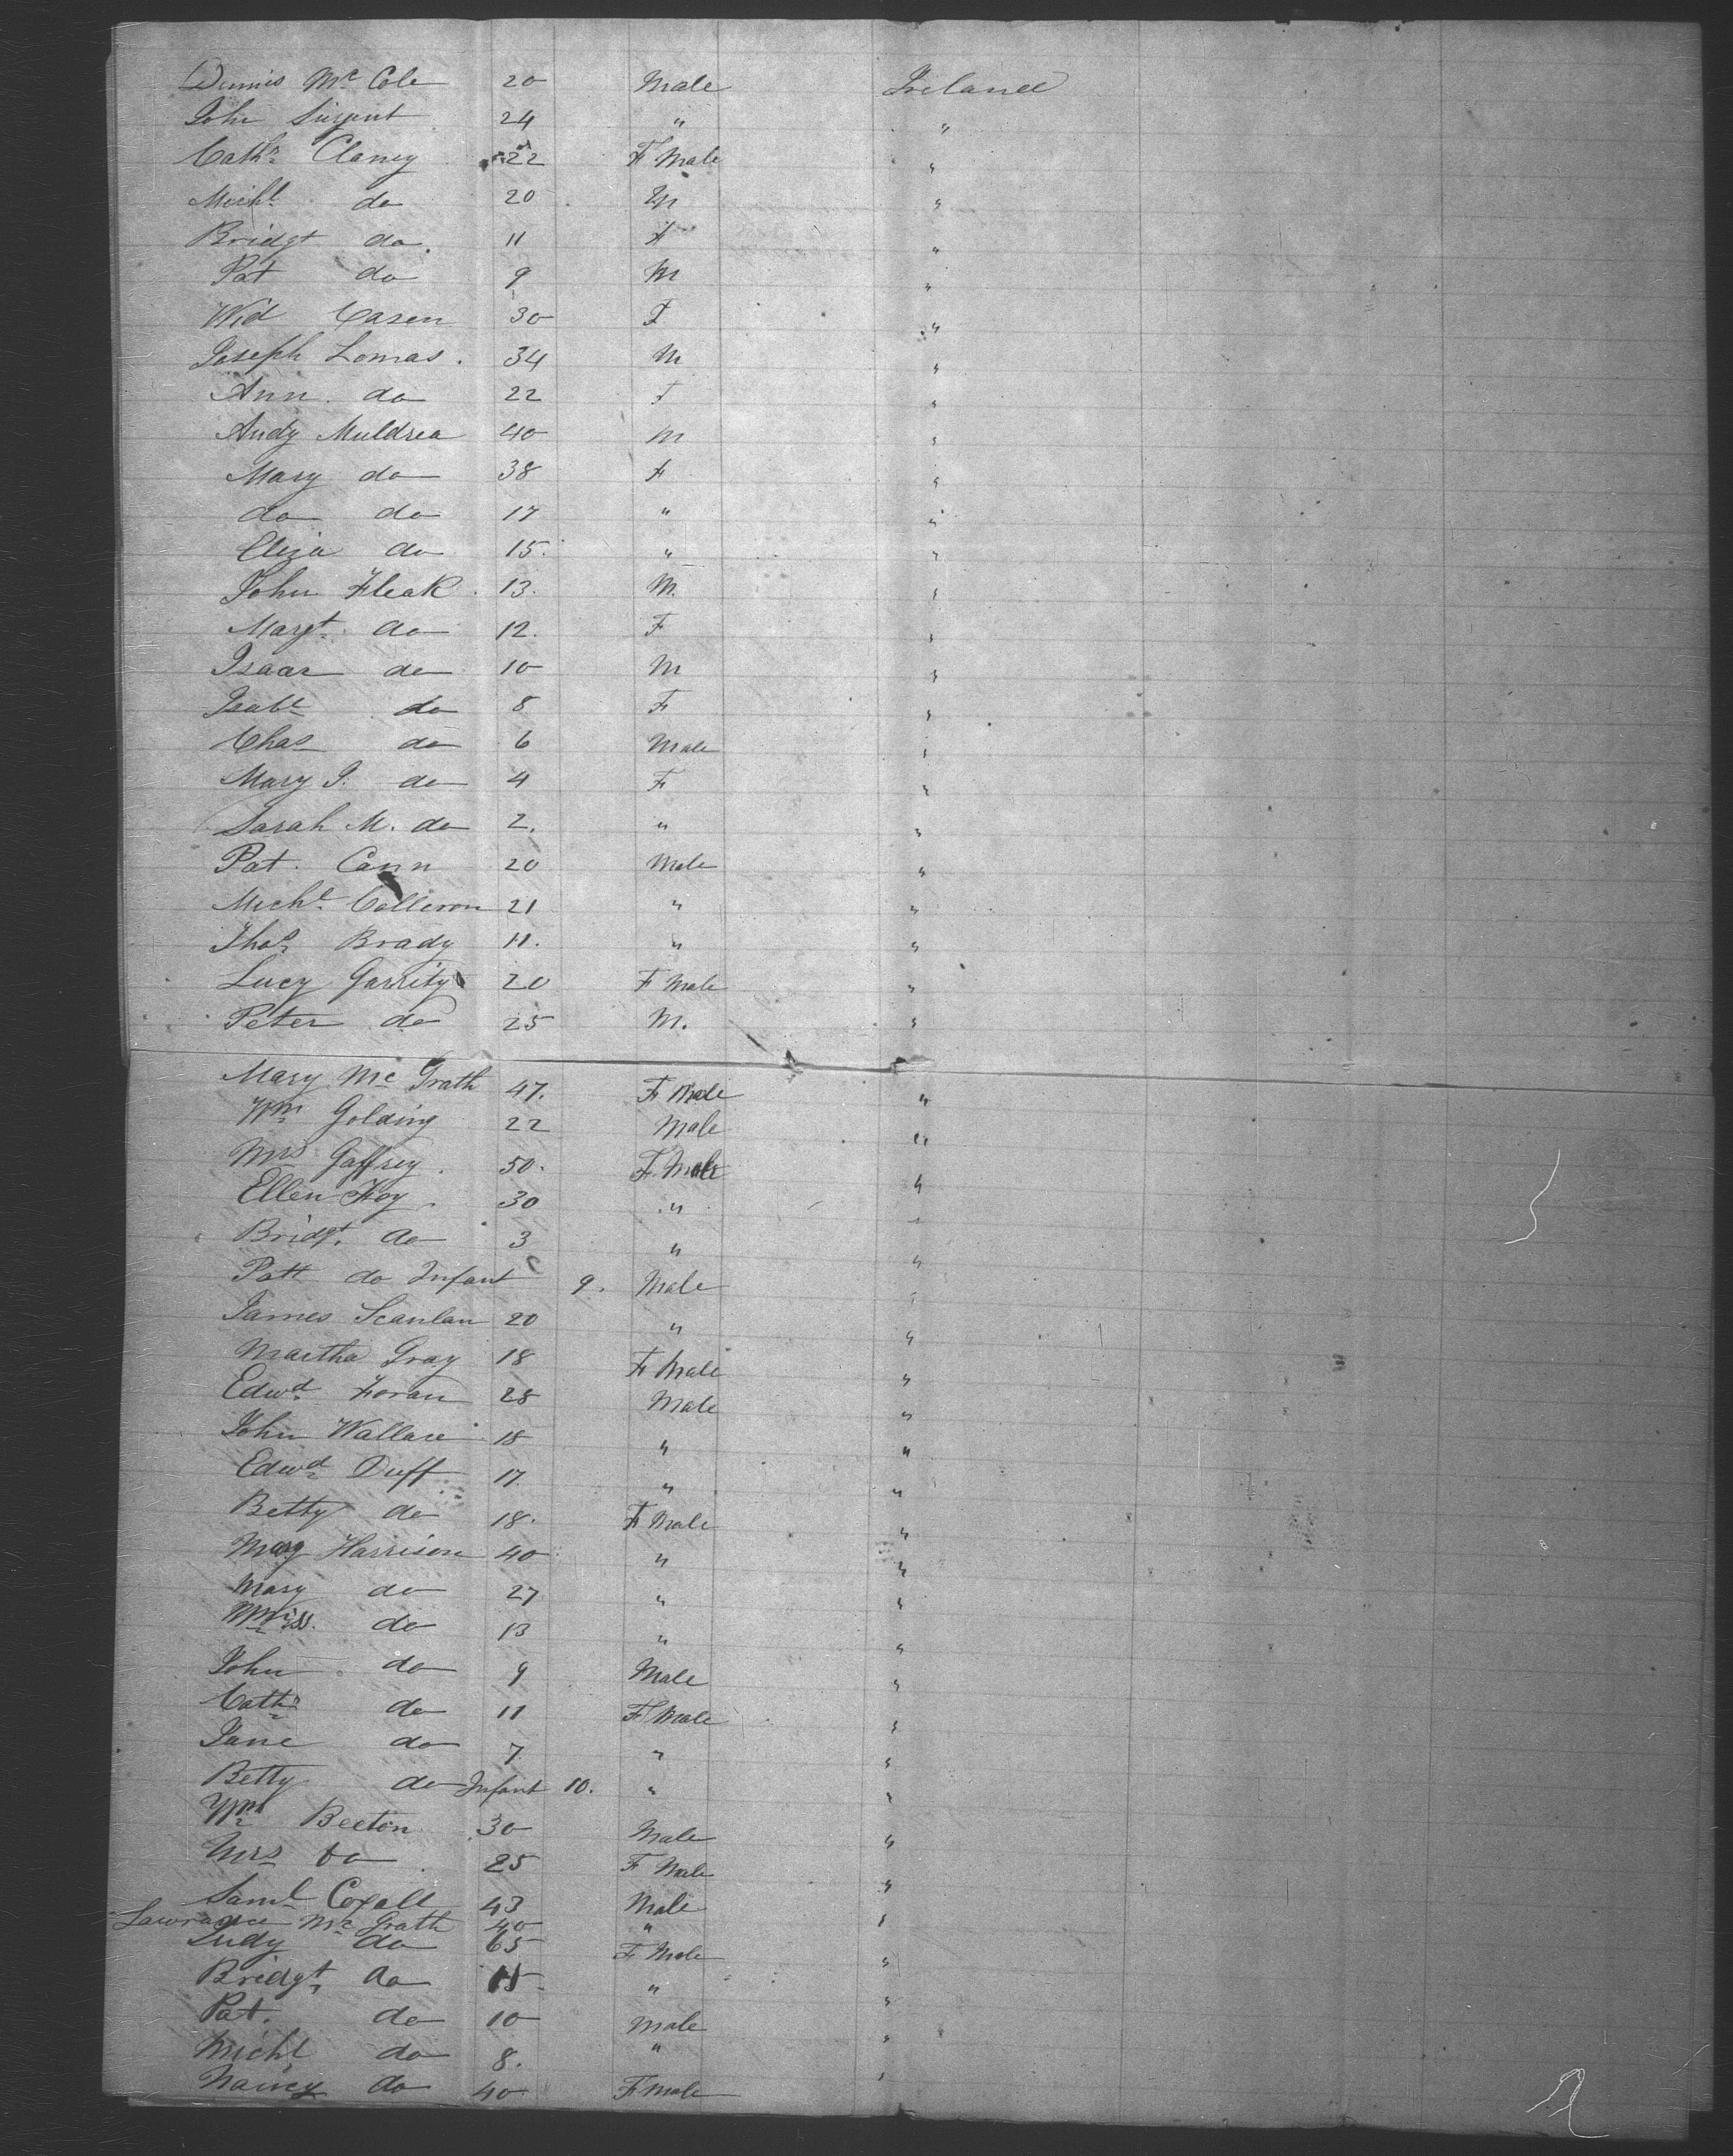 Dennis Mc Cole 20 Male Ireland
John Surgent 24 " "
Cathn Clancy 22 F Male "
Michl do 20 M "
Bridgt do 11 F "
Pat do 9 M "
Wid Casen 30 F "
Joseph Lomas. 34 M "
Ann do 22 F "
Andy Muldrea 40 M "
Mary do 38 F "
do do 17 " "
Eliza do 15. " "
John Fleak 13. M. "
Margt do 12. F "
Isaac do 10 M "
Isabe do 8 F "
Chas do 6 Male "
Mary J. do 4 F "
Sarah M. do 2. " "
Pat. Cann 20 Male "
Michl 21 " "
Thos Brady 11. " "
Lucy Garrity 20 F Male "
Peter do 25 M. "
Mary Mc Grath 47. F Male "
Wm Golding 22 Male "
Mrs Gaffrey. 50. F. Male "
Ellen Foy 30 " "
Bridgt. do 3 " "
Patt do Infant 9. Male "
James Scanlan 20 " "
Martha Gray 18 F Male "
Edwd Foran 28 Male "
John Wallace 18 " "
Edwd Duff 17. " "
Betty do 18. F Male "
Mary Harrison 40 " "
Mary do 27 " "
Miss. do 13 " "
John do 9 Male "
Cathn do 11 F Male "
Jane do 7. " "
Betty do Infant 10. " "
Wm Beeton 30 Male "
Mrs do 25 F Male "
Saml Coxall 43 Male "
Lawrance Mc Grath 40 "
Judy do 65 F Male "
Bridgt do 15 " "
Pat. do 10 Male "
Michl do 8. " "
Nancy do 40 F male